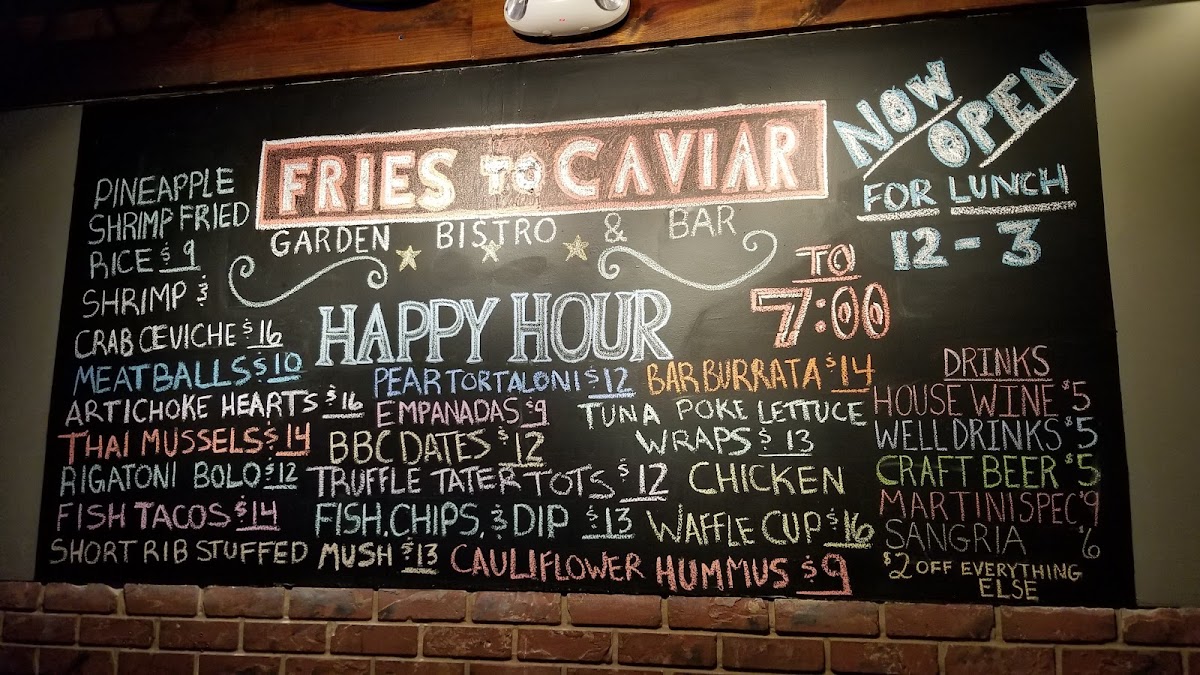 FRIES TO CAVIAR
GARDEN BISTRO & BAR
NOW
OPEN
FOR LUNCH
12-3
HAPPY HOUR
TO
7:00
PINEAPPLE
SHRIMP FRIED
RICE $9
SHRIMP &
CRAB CEVICHE $16
MEATBALLS $10
ARTICHOKE HEARTS $16
THAI MUSSELS $14
RIGATONI BOLO $12
FISH TACOS $14
SHORT RIB STUFFED MUSH $13
PEAR TORTALONI $12
EMPANADAS $9
BBC DATES $12
TRUFFLE TATER TOTS $12
FISH, CHIPS, & DIP $13
CAULIFLOWER HUMMUS $9
BAR BURRATA $14
TUNA POKE LETTUCE
WRAPS $13
CHICKEN
WAFFLE CUP $16
DRINKS
HOUSE WINE $5
WELL DRINKS $5
CRAFT BEER $5
MARTINI SPEC $9
SANGRIA $6
$2 OFF EVERYTHING
ELSE